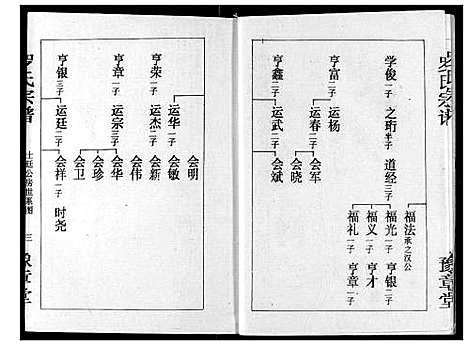 罗氏宗谱
豫章堂
学俊二子 之珩半子 道经三子
福法承之汉公
福光一子 亨银二子
福义一子 亨才
福礼一子 亨章二子
亨富二子 运杨
运春二子 会军
会晓
亨鑫二子 运武二子 会斌
亨荣二子 运华二子 会明
会敏
运杰二子 会新
会伟
亨章二子 运宗三子 会华
会珍
会卫
亨银三子 运廷一子 会祥一子 时尧
罗氏宗谱
世系图
三
豫章堂